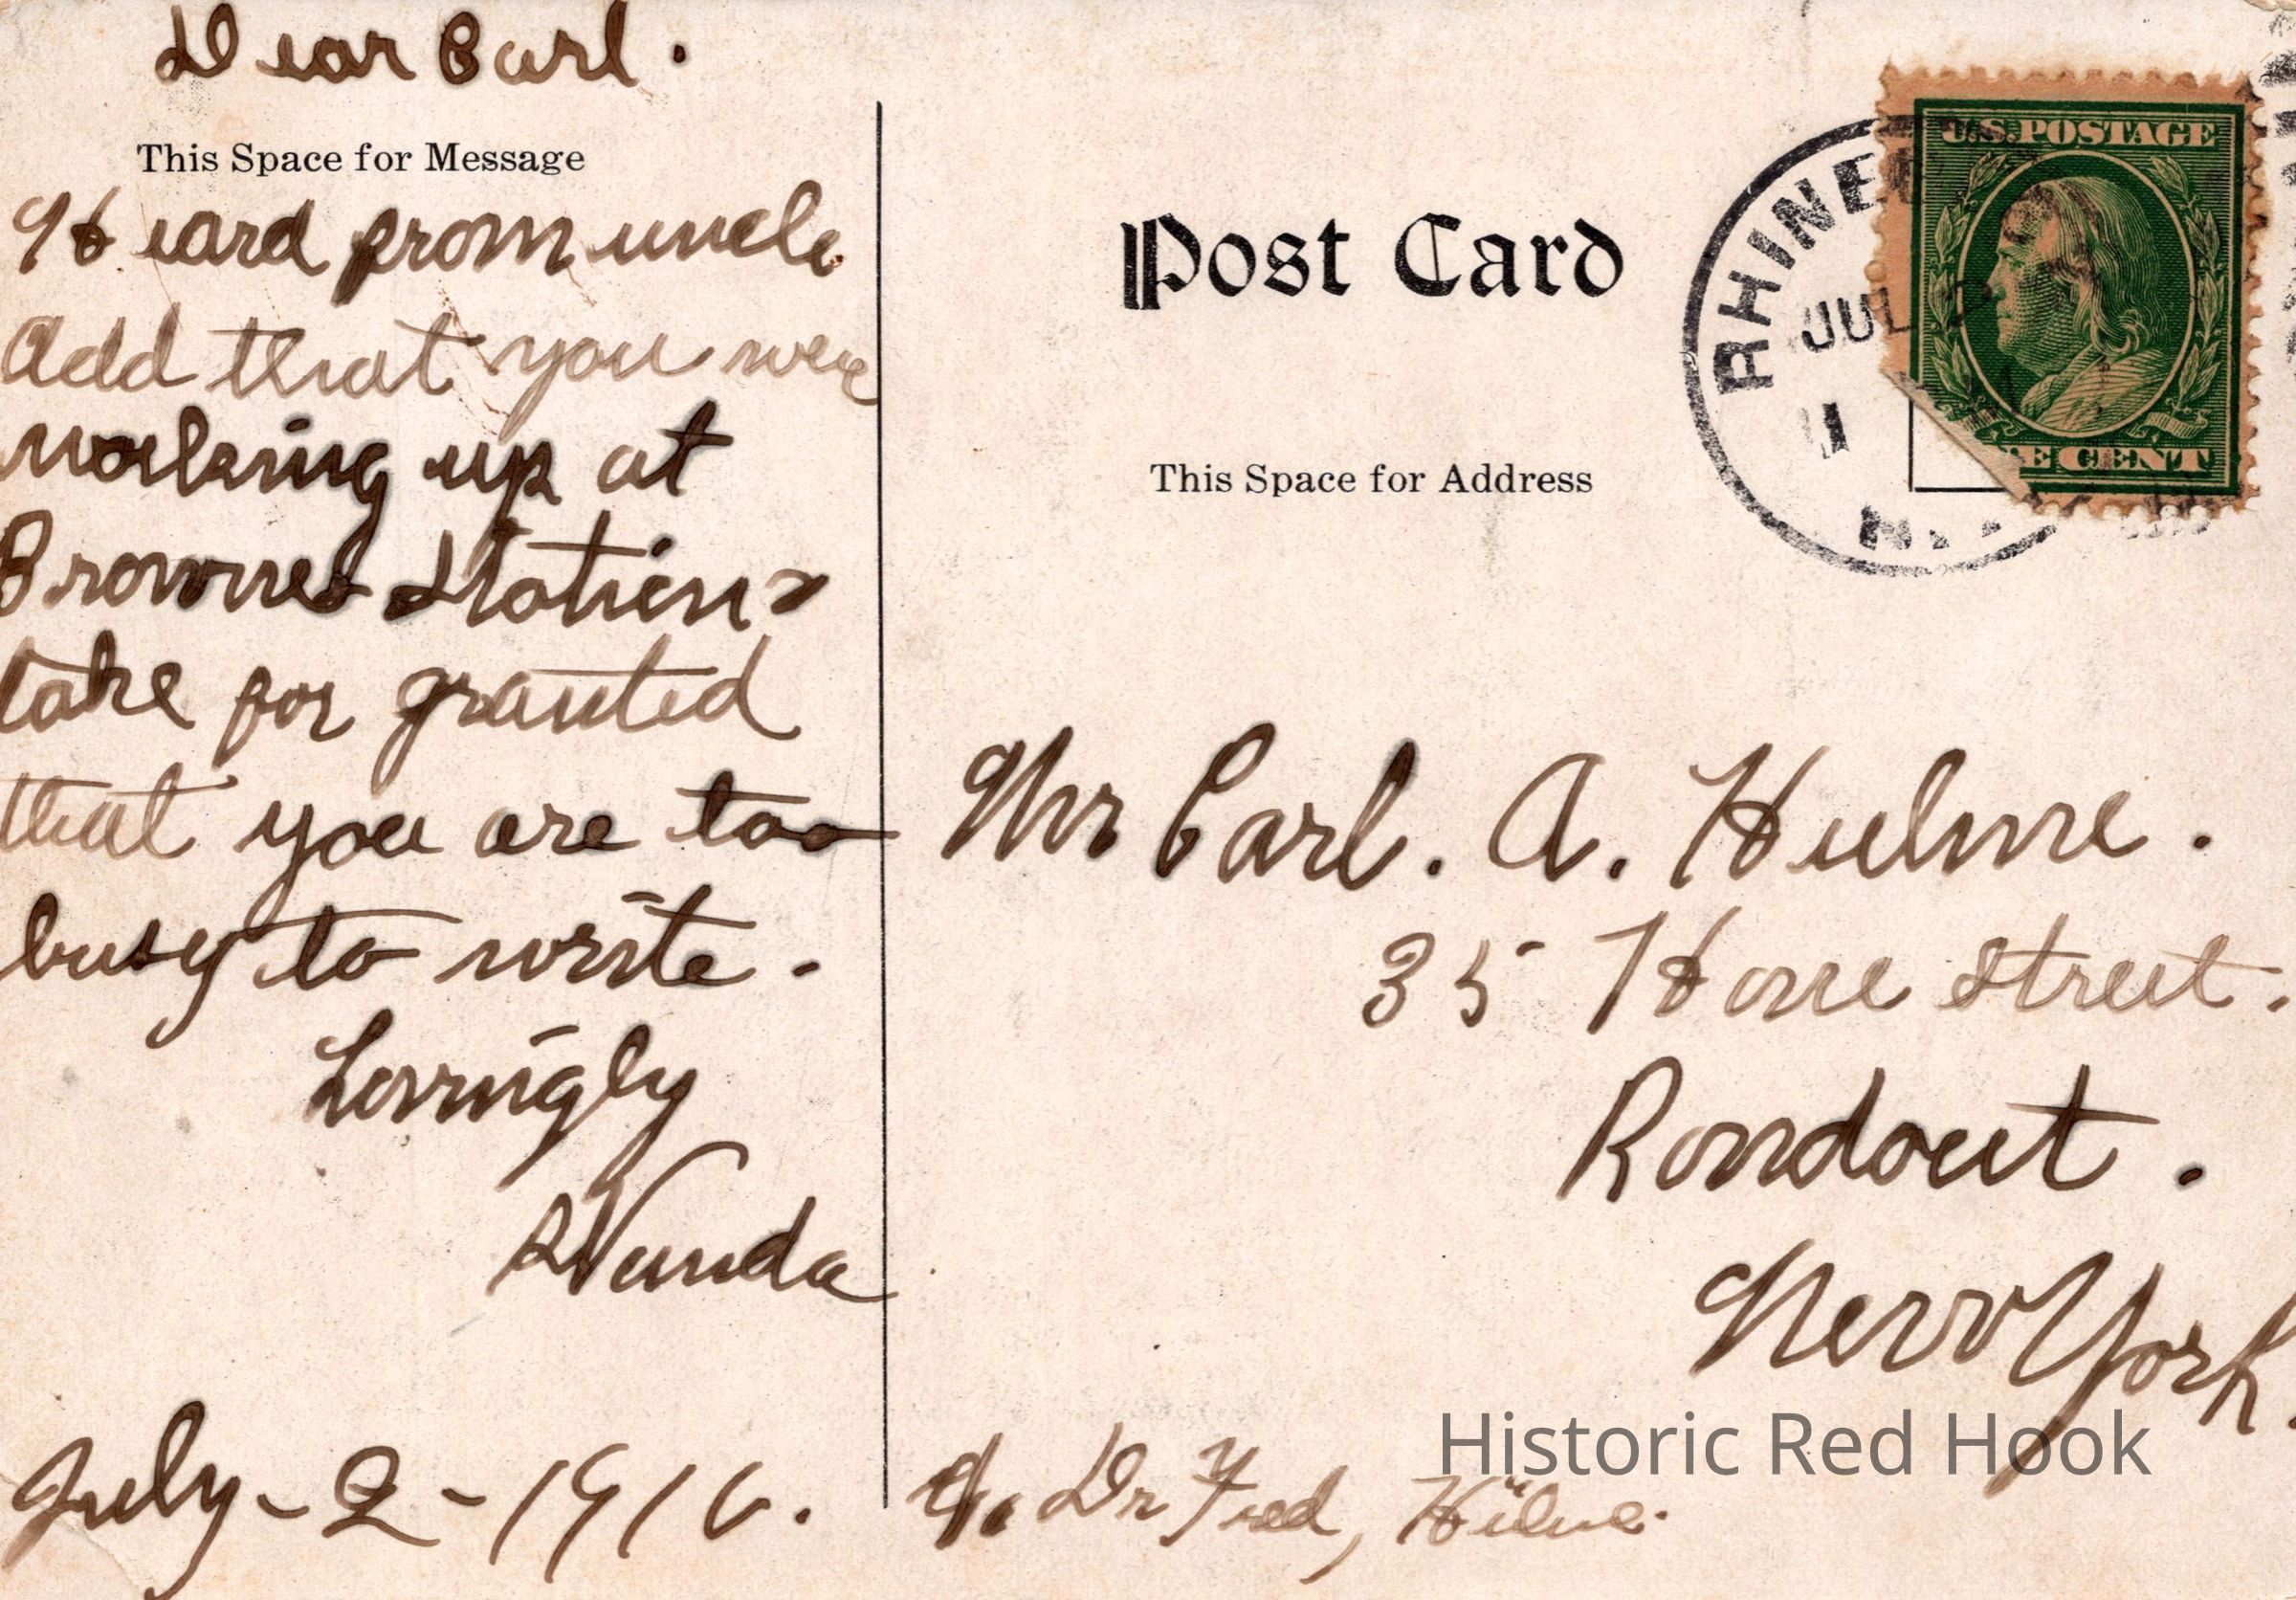 Dear Carl.
This Space for Message
Heard from uncle
Add that you were
working up at
Browns Station &
take for granted
that you are too
busy to write.
Lovingly
Wanda
July - 2 - 1910.
Post Card
This Space for Address
Mr Carl. A. Hulme.
35 Hone street.
Rondout.
New York.
c/o Dr Fred,
RHINE
JUL 2
N.Y.
U.S. POSTAGE
E CENT
Historic Red Hook